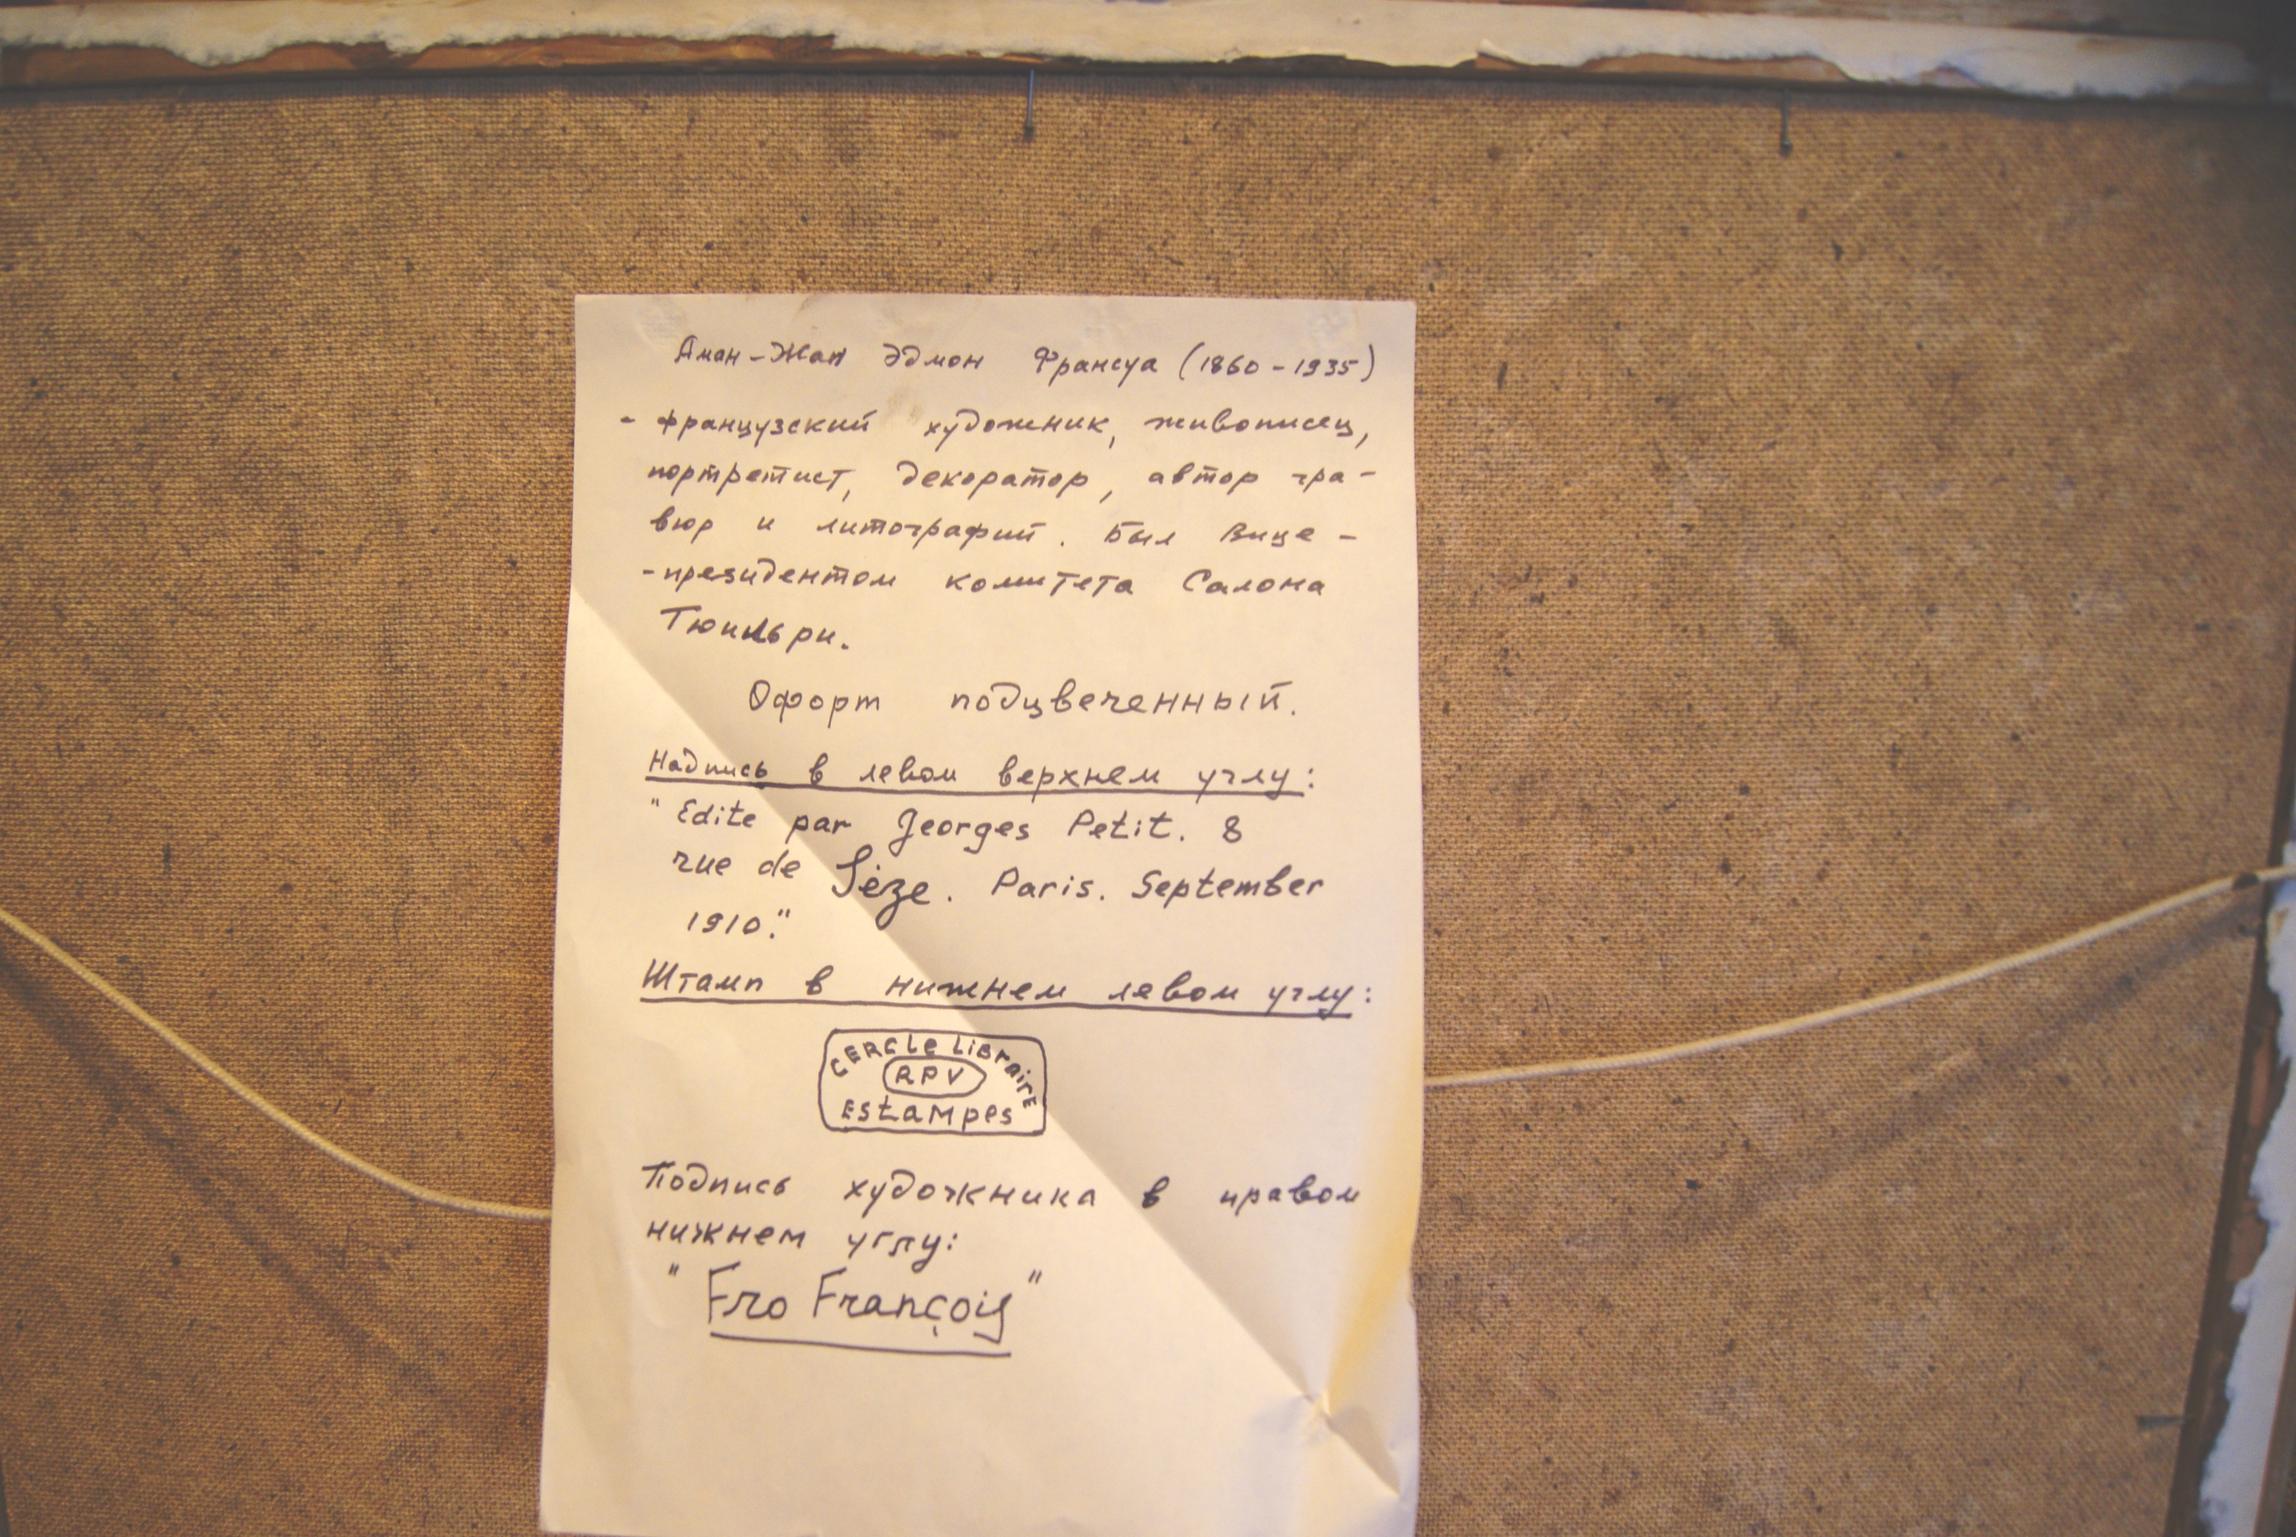 Аман-Жан Эдмон Франсуа (1860-1935)
- французский художник, живописец,
портретист, декоратор, автор гра-
вюр и литографий. Был Вице-
-президентом комитета Салона
Тюильри.
Офорт подцвеченный.
Надпись в левом верхнем углу:
" Edite par Georges Petit. 8
rue de Sèze. Paris. September
1910."
Штамп в нижнем левом углу:
CERCle LiBrairE
RPV
EstAMpes
Подпись художника в правом
нижнем углу:
" Fro François "